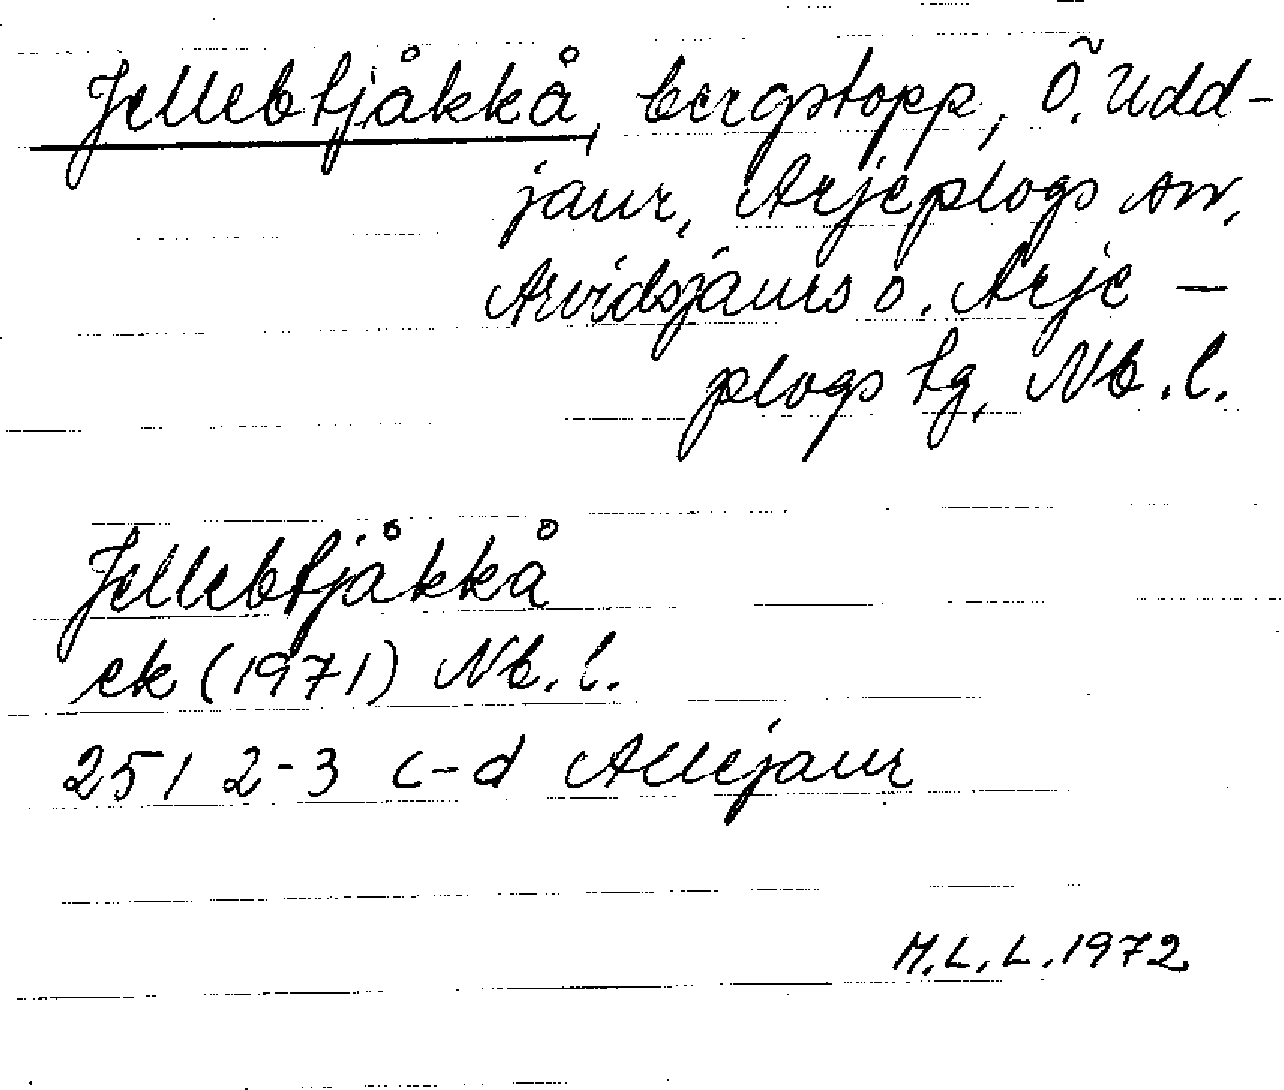 Jellebtjåkkå, bergstopp, Ö. Udd-
jaur, Arjeplogs sn,
Arvidsjaurs o. Arje-
plogs tg, Nb.l.
Jellebtjåkkå
ek (1971) Nb.l.
251 2-3 c-d Allejaur
M.L.L. 1972